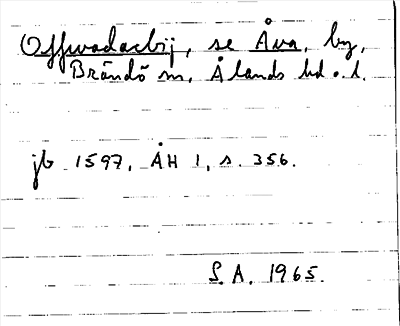 Offwadacbij, se Åva, by,
Brändö sn, Ålands hd o. l.
jb 1597, ÅH 1, s. 356.
S. A. 1965.